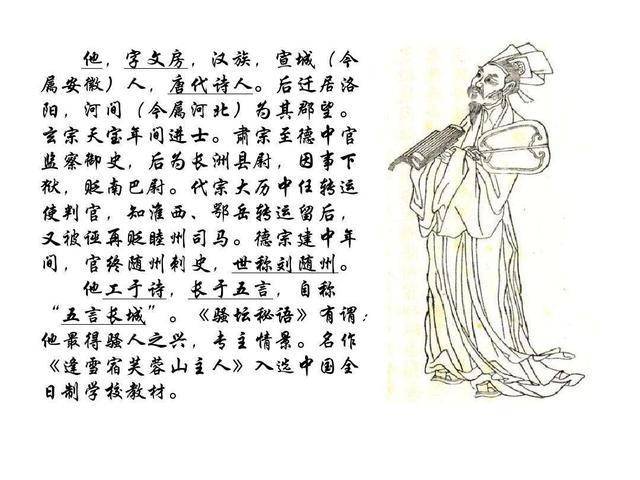 他，字文房，汉族，宣城（今
属安徽）人，唐代诗人。后迁居洛
阳，河间（今属河北）为其郡望。
玄宗天宝年间进士。肃宗至德中官
监察御史，后为长洲县尉，因事下
狱，贬南巴尉。代宗大历中任转运
使判官，知淮西、鄂岳转运留后，
又被诬再贬睦州司马。德宗建中年
间，官终随州刺史，世称刘随州。
他工于诗，长于五言，自称
“五言长城”。《骚坛秘语》有谓：
他最得骚人之兴，专主情景。名作
《逢雪宿芙蓉山主人》入选中国全
日制学校教材。